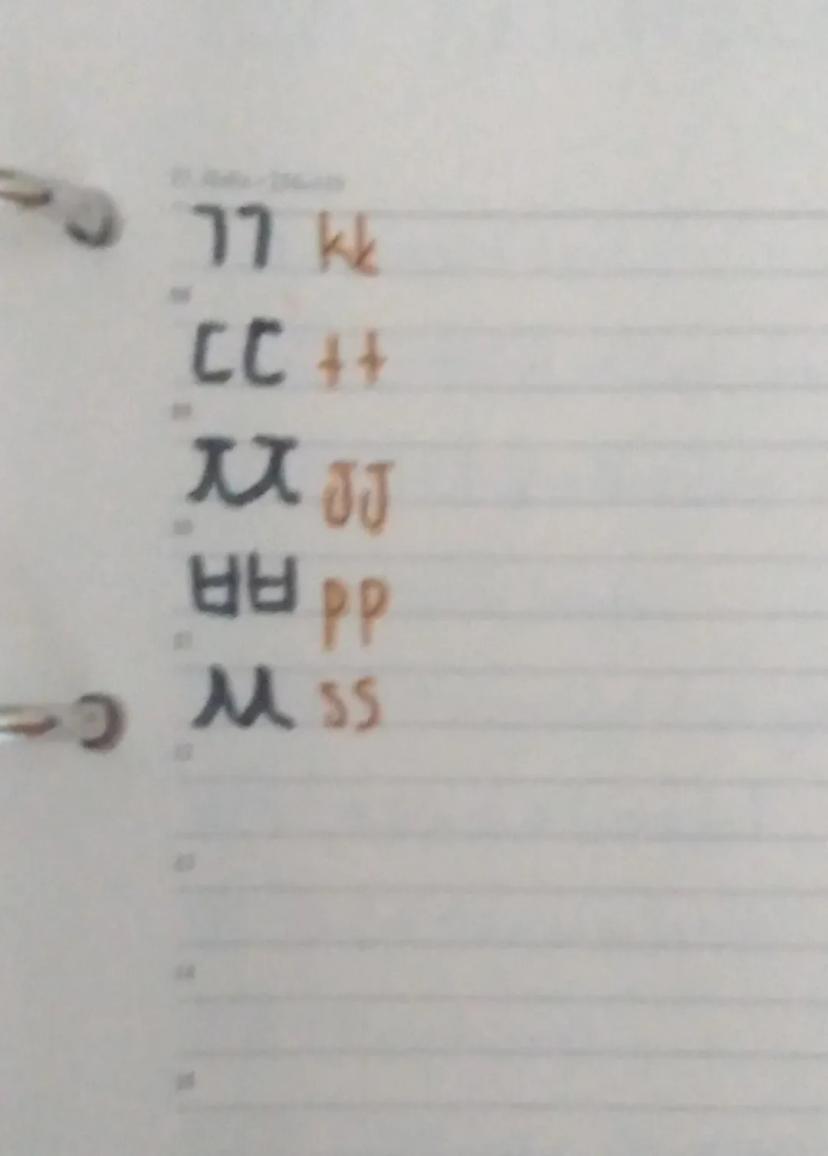 ㄲ kk
ㄸ tt
ㅉ JJ
ㅃ pp
ㅆ ss